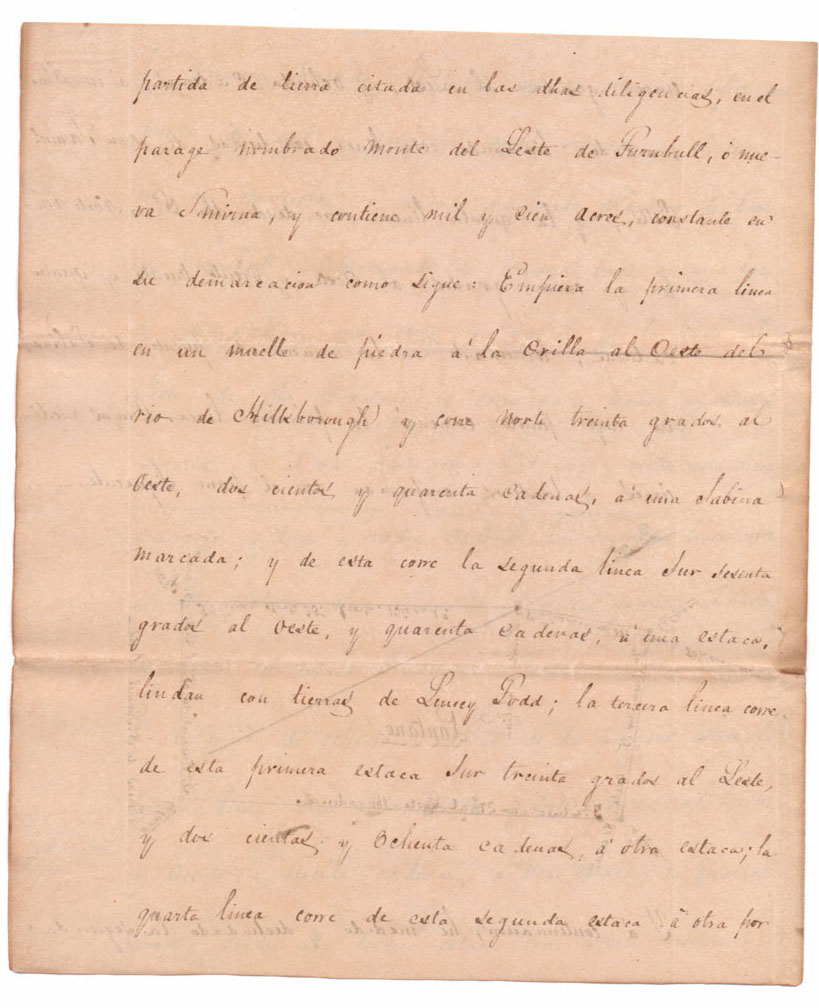 partida de tierra citada en las dhas diligencias, en el
parage nombrado monte del Leste de Turnbull, ó nue-
va Smirna, y contiene mil y cien acres, constante en
su demarcacion como sigue: Empieza la primera linea
en un muelle de piedra á la Orilla al Oeste del
rio de Hillsborough y corre Norte treinta grados al
Oeste, dos cientos y quarenta cadenas, á una Sabina
marcada; y de esta corre la segunda linea Sur sesenta
grados al Oeste, y quarenta cadenas, á una estaca,
lindan con tierras de Todd; la tercera linea corre
de esta primera estaca Sur treinta grados al Leste,
y dos cientas y Ochenta cadenas, á otra estaca; la
quarta linea corre de esta segunda estaca á otra por